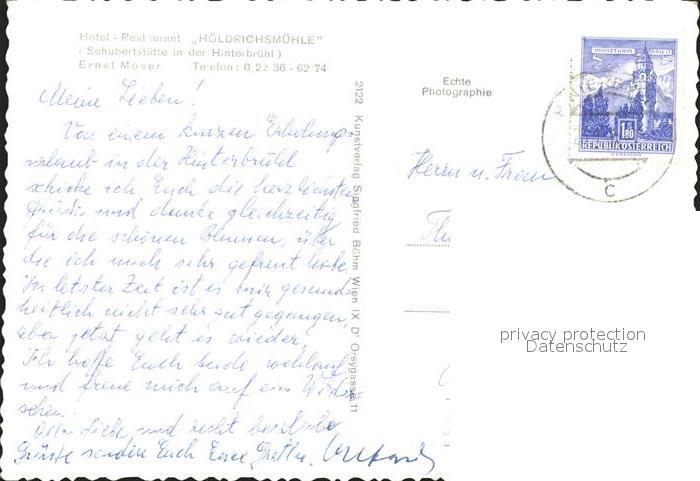 Hotel - Restaurant „HÖLDRICHSMÜHLE"
( Schubertstätte in der Hinterbrühl )
Ernst Moser Telefon: 0 22 36 - 62 74
Meine Lieben!
Von einem kurzen Erholungs-
urlaub in der Hinterbrühl
schicke ich Euch die herzlichsten
Grüße und danke gleichzeitig
für die schönen Blumen, über
die ich mich sehr gefreut habe.
In letzter Zeit ist es mir gesund-
heitlich nicht sehr gut gegangen,
aber jetzt geht es wieder.
Ich hoffe Euch beide wohlauf
und freue mich auf ein Wieder-
sehen!
Alles Liebe und recht herzliche
Grüße senden Euch Eure
2122 Kunstverlag Siegfried Böhm Wien IX D' Orsaygasse 11
Echte
Photographie
MÜNZTURM HALL I.T.
S
1.80
REPUBLIK ÖSTERREICH
C
Herrn u. Frau
privacy protection
Datenschutz